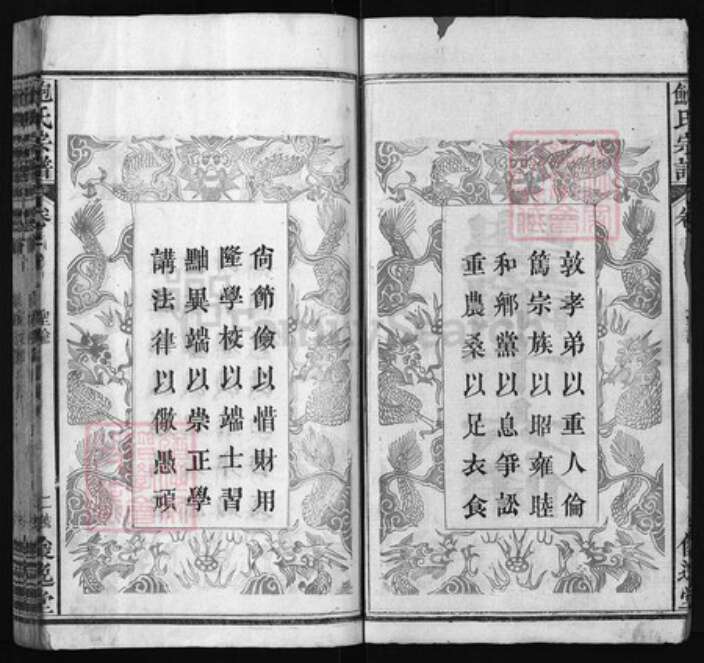 敦孝弟以重人倫
篤宗族以昭雍睦
和鄉黨以息爭訟
重農桑以足衣食
尙節儉以惜財用
隆學校以端士習
黜異端以崇正學
講法律以儆愚頑
鮑氏宗譜
鮑氏宗譜